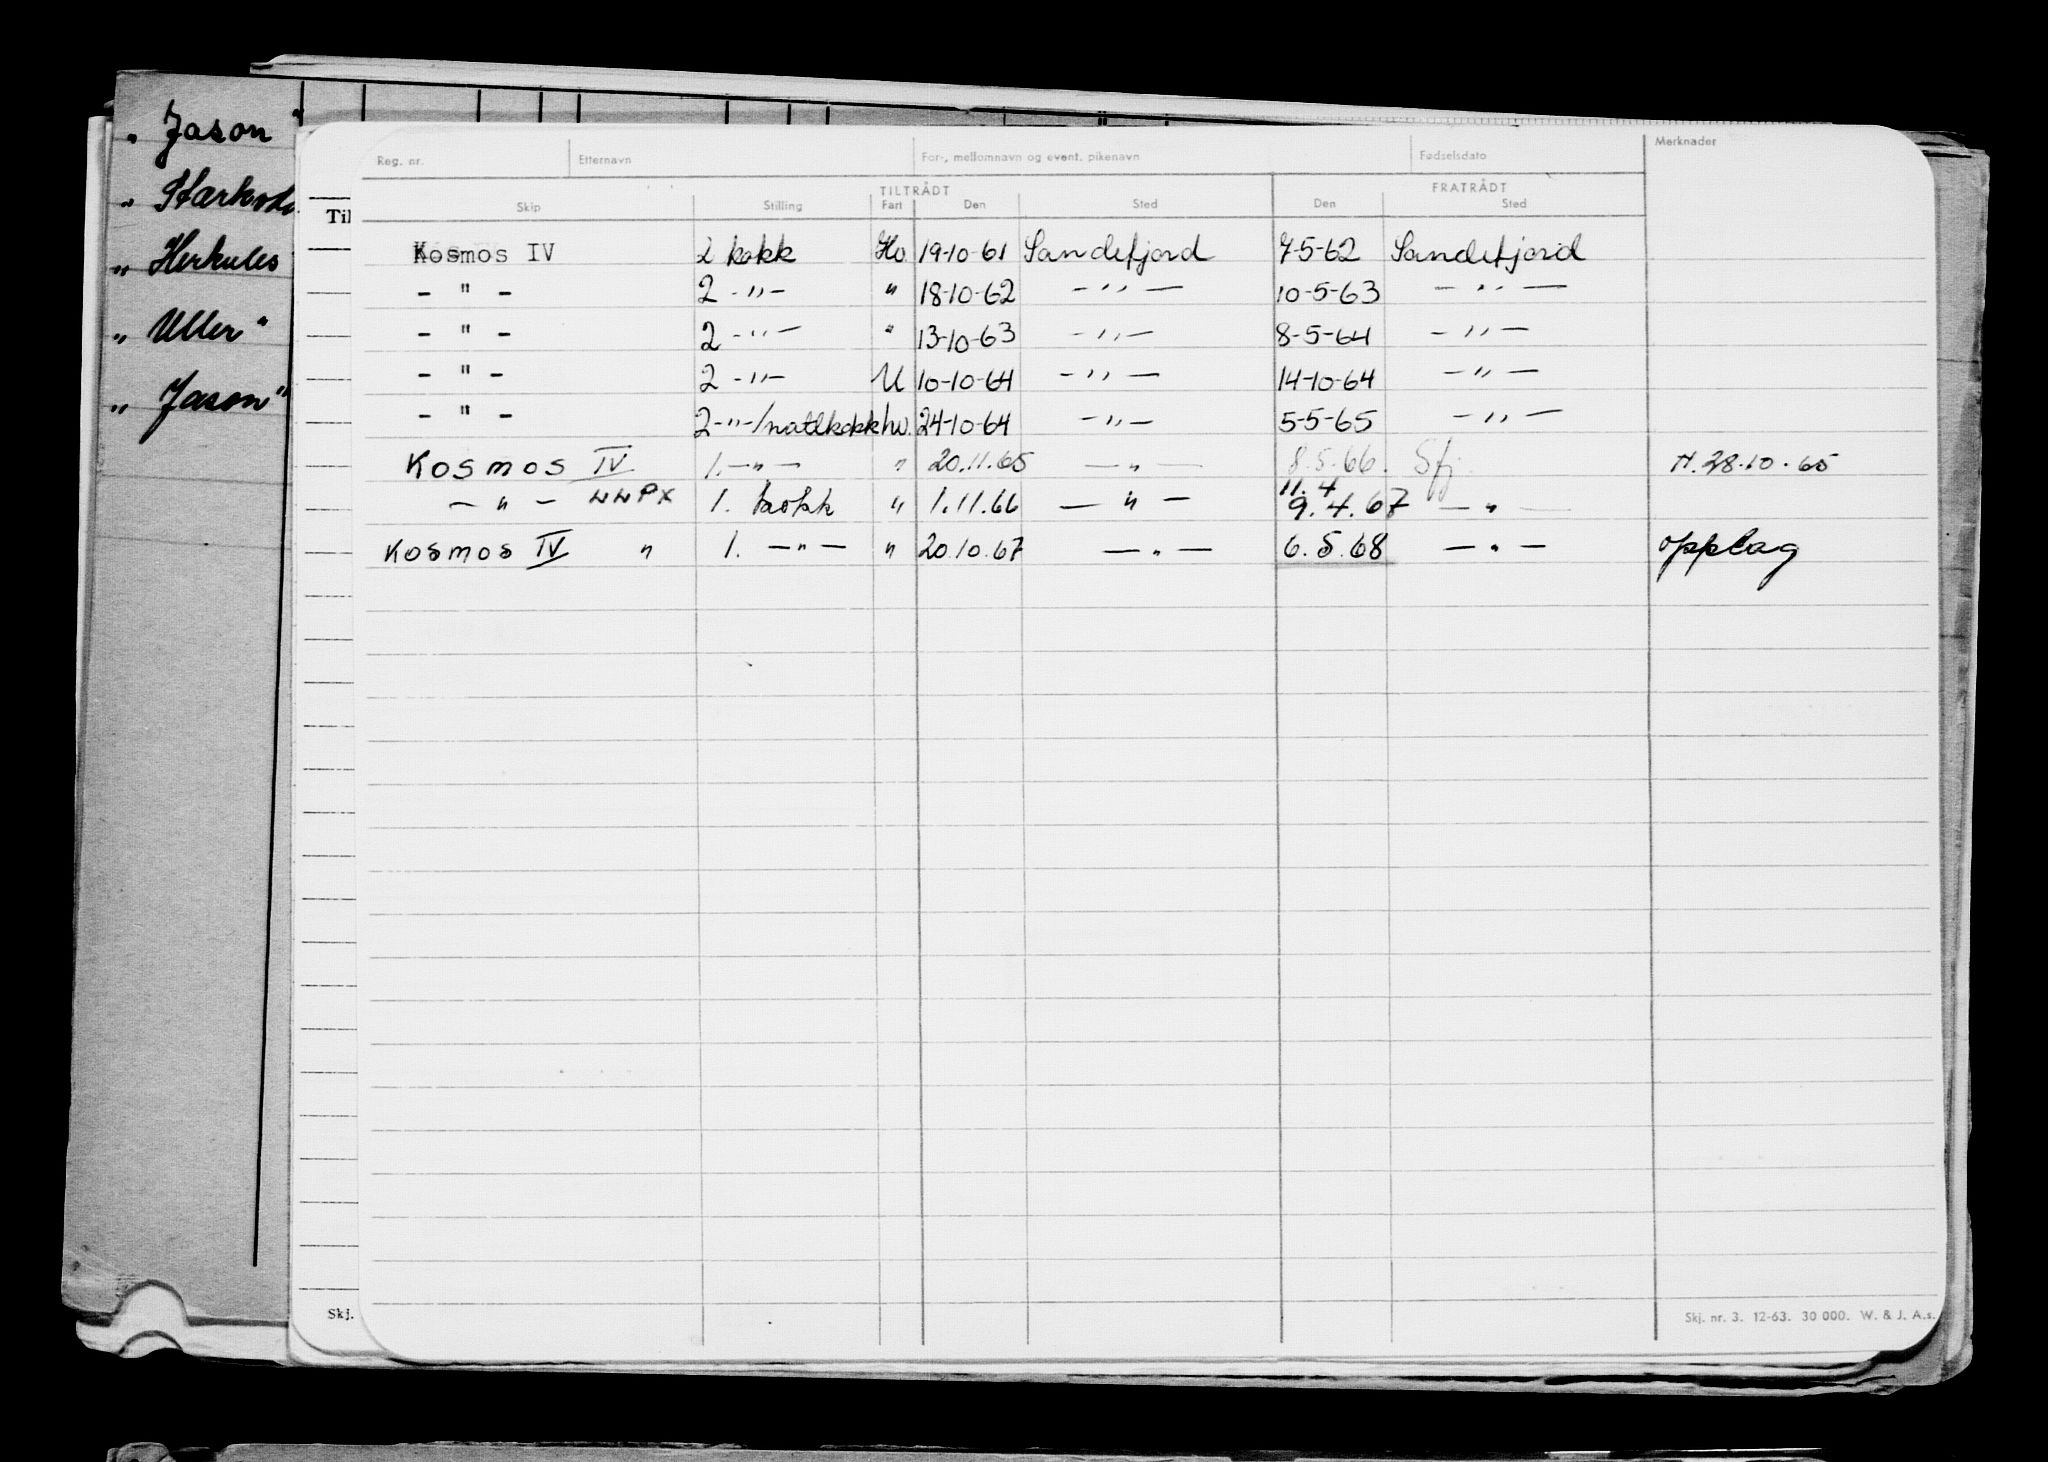 „ Jason "
„ Herkules
„ Uller "
„ Jason "
Til
Skj.
Reg. nr. Etternavn For-, mellomnavn og event. pikenavn Fødselsdato Merknader
TILTRÅDT FRATRÅDT
Skip Stilling Fart Den Sted Den Sted
Kosmos IV 2 kokk Hv 19-10-61 Sandefjord 7-5-62 Sandefjord
- " - 2 -"- " 18-10-62 -"- 10-5-63 -"-
- " - 2 -"- " 13-10-63 -"- 8-5-64 -"-
- " - 2 -"- U 10-10-64 -"- 14-10-64 -"-
- " - 2 -"-/nattkokk hv. 24-10-64 -"- 5-5-65 -"-
Kosmos IV 1. -"- " 20.11.65 -"- 8.5.66. Sfj. H. 28.10.65
-"- LLPX 1. kokk " 1.11.66 -"- 11.4 9.4.67 -"-
Kosmos IV " 1. -"- " 20.10.67 -"- 6.5.68 -"- opplag
Skj. nr. 3. 12-63. 30 000. W. & J. A.s.